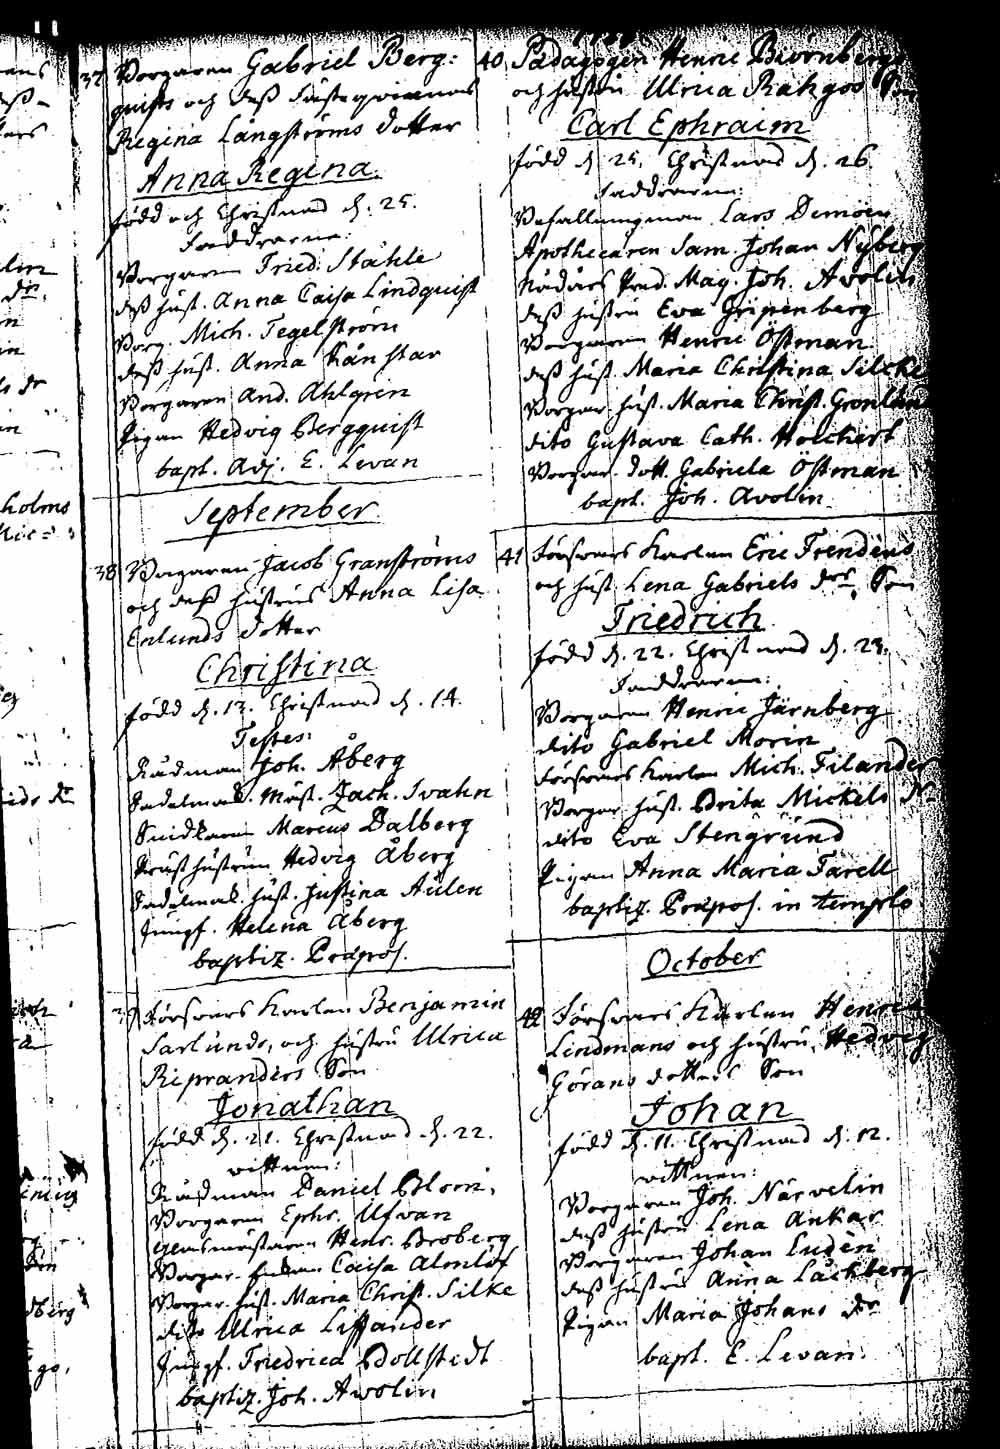 37 Borgaren Gabriel Berg:
quists och deß Fästeqvinnas
Regina Långströms dotter
Anna Regina
född och Christnad d. 25.
Faddrarne:
Borgaren Fried. Ståhle
deß hust. Anna Caisa Lindquist
Borg. Mich. Tegelström
deß hust. Anna
Borgaren And. Ahlgrin
Pigan Hedvig Bergquist
bapt. Adj. E. Levan
September
38 Borgaren Jacob Granströms
och deß hustrus Anna Lisa
Enlunds dotter
Christina
född d. 13. Christnad d. 14.
Testes:
Rådman Joh. Åberg
Sadelmak. Mäst. Zach. Svahn
Marcus Dalberg
hustrun Hedvig Åberg
Sadelmak. hust. Justina Aulen
Jungf. Helena Åberg
baptiz. Præpos.
39 Försvars Karlen Benjamin
Sarlunds, och hustru Ulrica
Ripranders Son
Jonathan
född d. 21. Christnad d. 22.
vittnen:
Rådman Daniel Blom,
Borgaren Ephr. Ufvan
Henr. Broberg
Borgar. Caisa Almlöf
Borgar. hust. Maria Christ. Silke
dito Ulrica Lissander
Jungf. Friedrica Bollstedt
baptiz. Joh. Avolin
40 Pædagogen Henric Biörnbergs
och hustru Ulrica Rahgos Son
Carl Ephraim
född d. 25. Christnad d. 26.
Faddrarne:
Befallningman Lars Demoen
Apothecaren Sam. Johan Nyberg
Præd. Mag. Joh. Avolin
deß hustru Eva Gripenberg
Borgaren Henric Östman
deß hust. Maria Christina Silcke
Borgar. hust. Maria Christ. Gronlund
dito Gustava Cath.
Borgar. dott. Gabriela Östman
bapt. Joh. Avolin
41 Försvars Karlen Eric Frendens
och hust. Lena Gabriels drs Son
Friedrich
född d. 22. Christnad d. 23.
Faddrarne:
Borgaren Henric Järnberg
dito Gabriel Morin
Försvars Karlen Mich. Filander
Borgar. hust. Brita Mickels dr
dito Eva Stengrund
Pigan Anna Maria Farell
baptiz. Præpos. in templo
October
42 Försvars Karlen Henric
Lindmans och hustru, Hedvig
Görans dotters Son
Johan
född d. 11. Christnad d. 12.
vittnen:
Borgaren Joh. Närvelin
deß hustru Lena Ankar
Borgaren Johan Luden
deß hustru Anna Läckberg
Pigan Maria Johans dr
bapt. E. Levan.